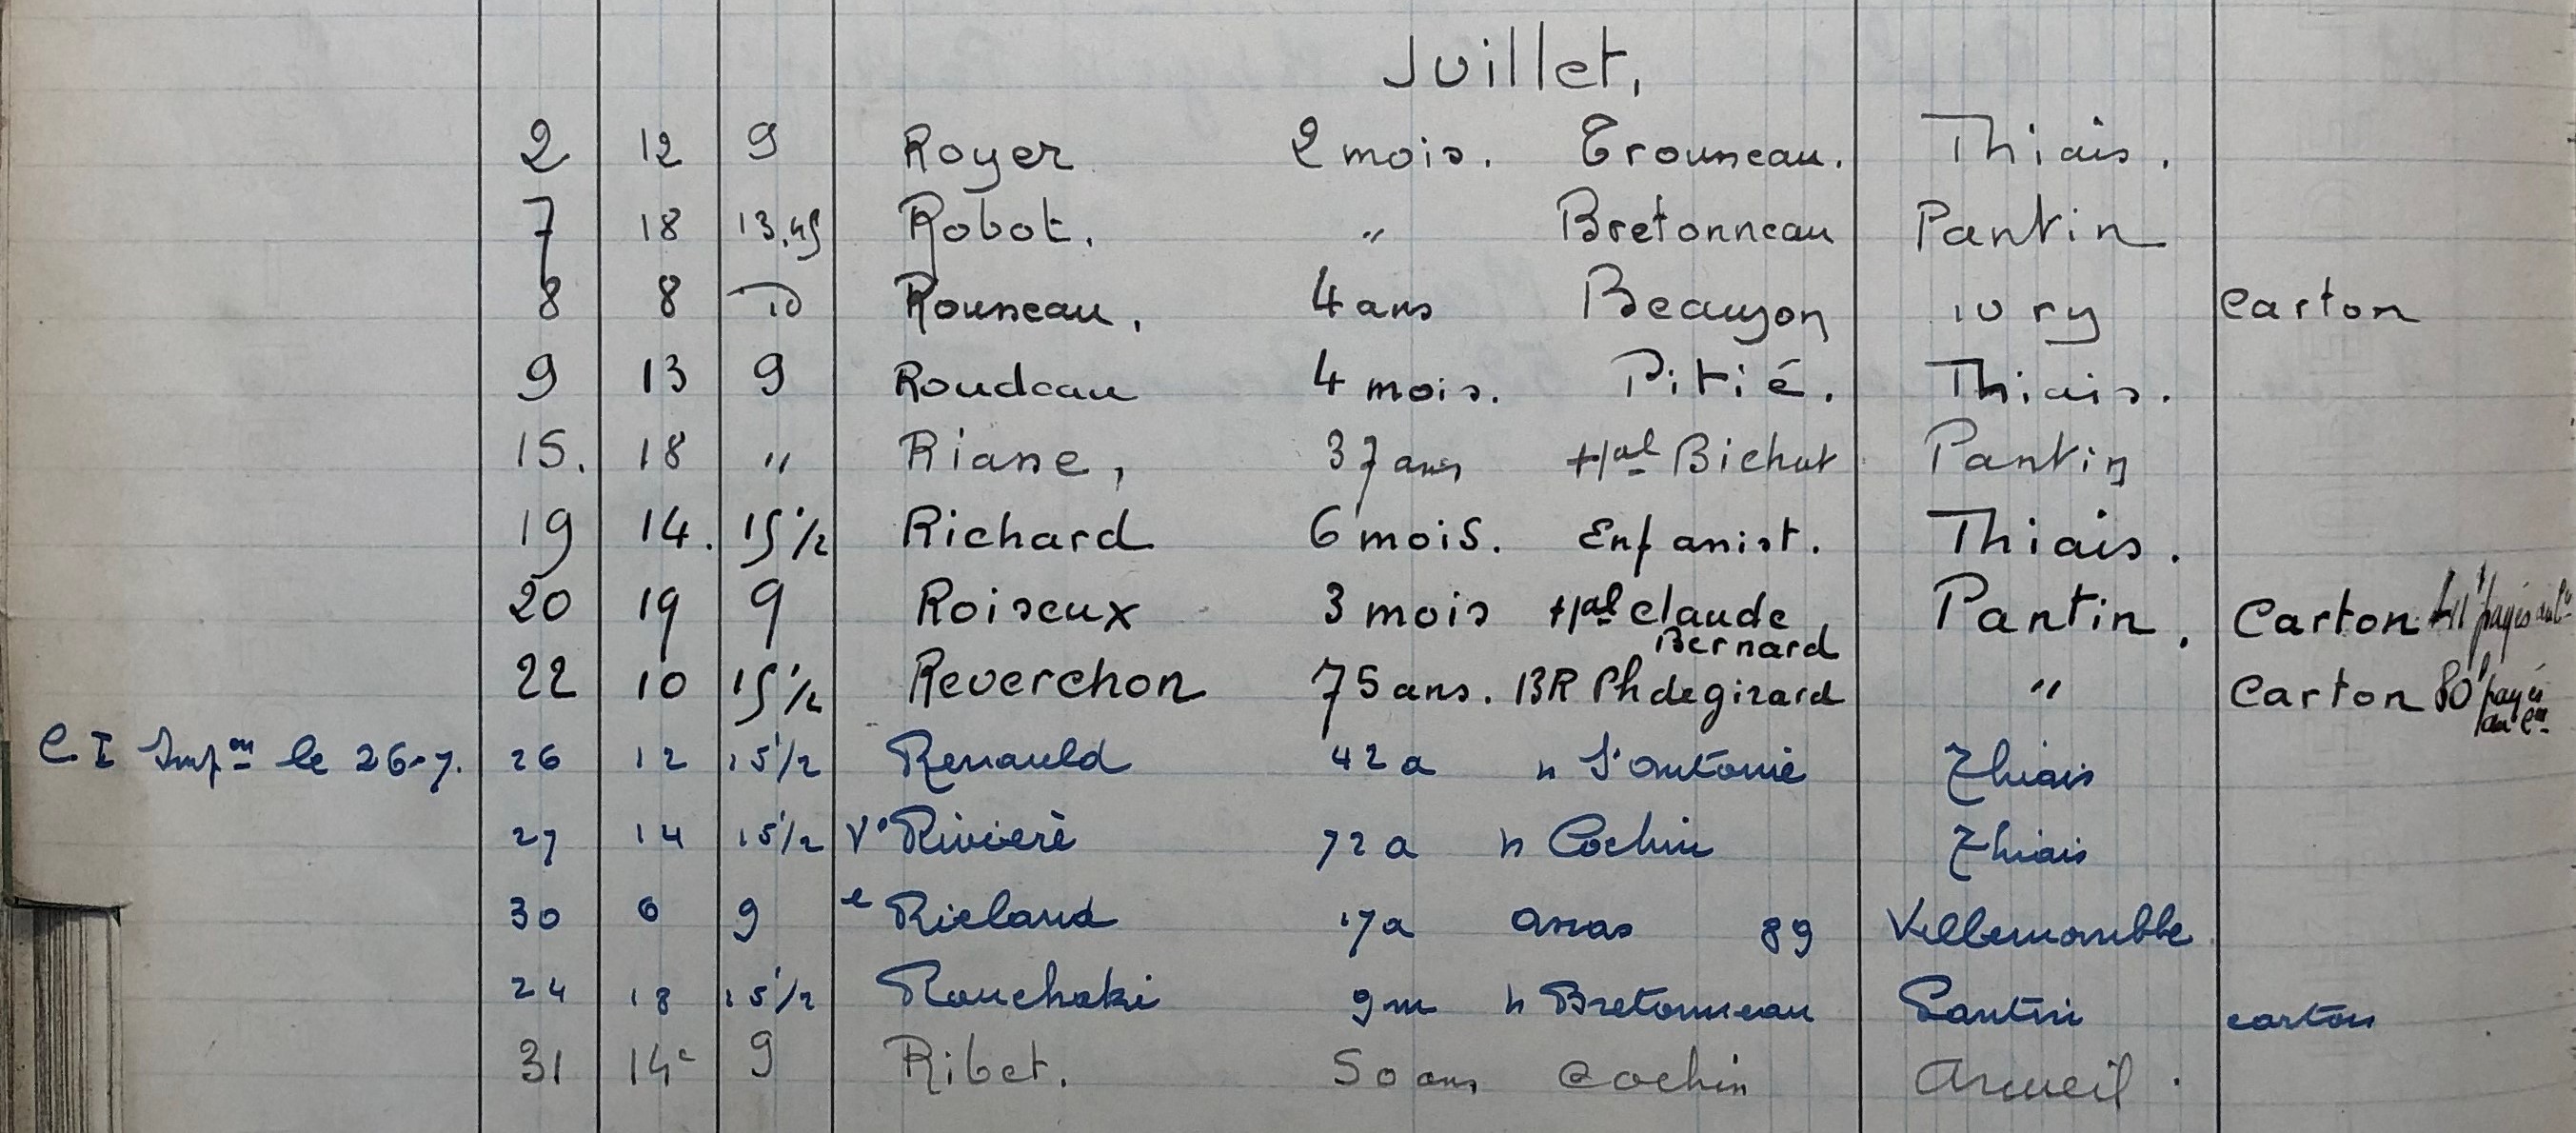 Juillet,
2 12 9 Royer 2 mois. Trousseau. Thiais.
7 18 13.45 Robot. " Bretonneau Pantin
8 8 10 Rousseau, 4 ans Beaujon ivry carton
9 13 9 Roudeau 4 mois. Pitié. Thiais.
15. 18 " Riasse, 37 ans Hal Bichat Pantin
19 14. 15 1/2 Richard 6 mois. Enf assist. Thiais.
20 19 9 Roiseux 3 mois Hal Claude Bernard Pantin. Carton payés
22 10 15 1/2 Reverchon 75 ans. BR Ph de girard " Carton 80f payés
C I Inson le 26-7. 26 12 15 1/2 Renauld 42 a h St antoine Thiais
27 14 15 1/2 Ve Rivière 72 a h Cochin Thiais
30 6 9 e Rieland 17 a assas 89 Villemomble
24 18 15 1/2 Rouchaki 9 m h Bretonneau Pantin carton
31 14e 9 Ribet. 50 ans Cochin Arcueil.